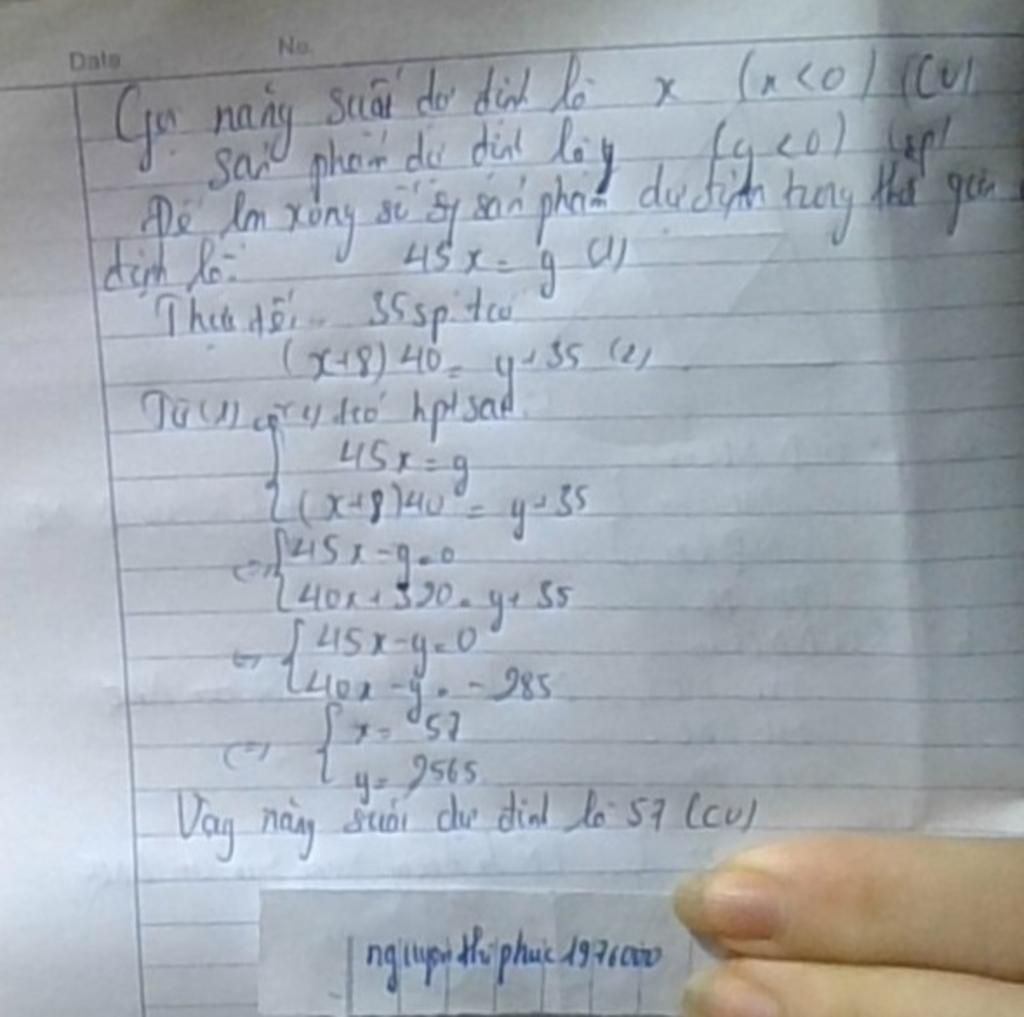 Date No.
Gọi năng suất dự định là x (x<0) (CV)
sản phẩm dự định là y (y<0) (sp)
Để làm xong số sản phẩm dự định trong thời gian
định là: 45x = y (1)
35sp tcó
(x+8)40 = y+35 (2)
Từ (1) tcó hpt sau
45x = y
(x+8)40 = y+35
<=> 45x-y=0
40x+320=y+35
<=> 45x-y=0
40x-y=-285
<=> x= 57
y= 2565
Vậy năng suất dự định là 57 (CV)
nguyen thi phuc 1976000